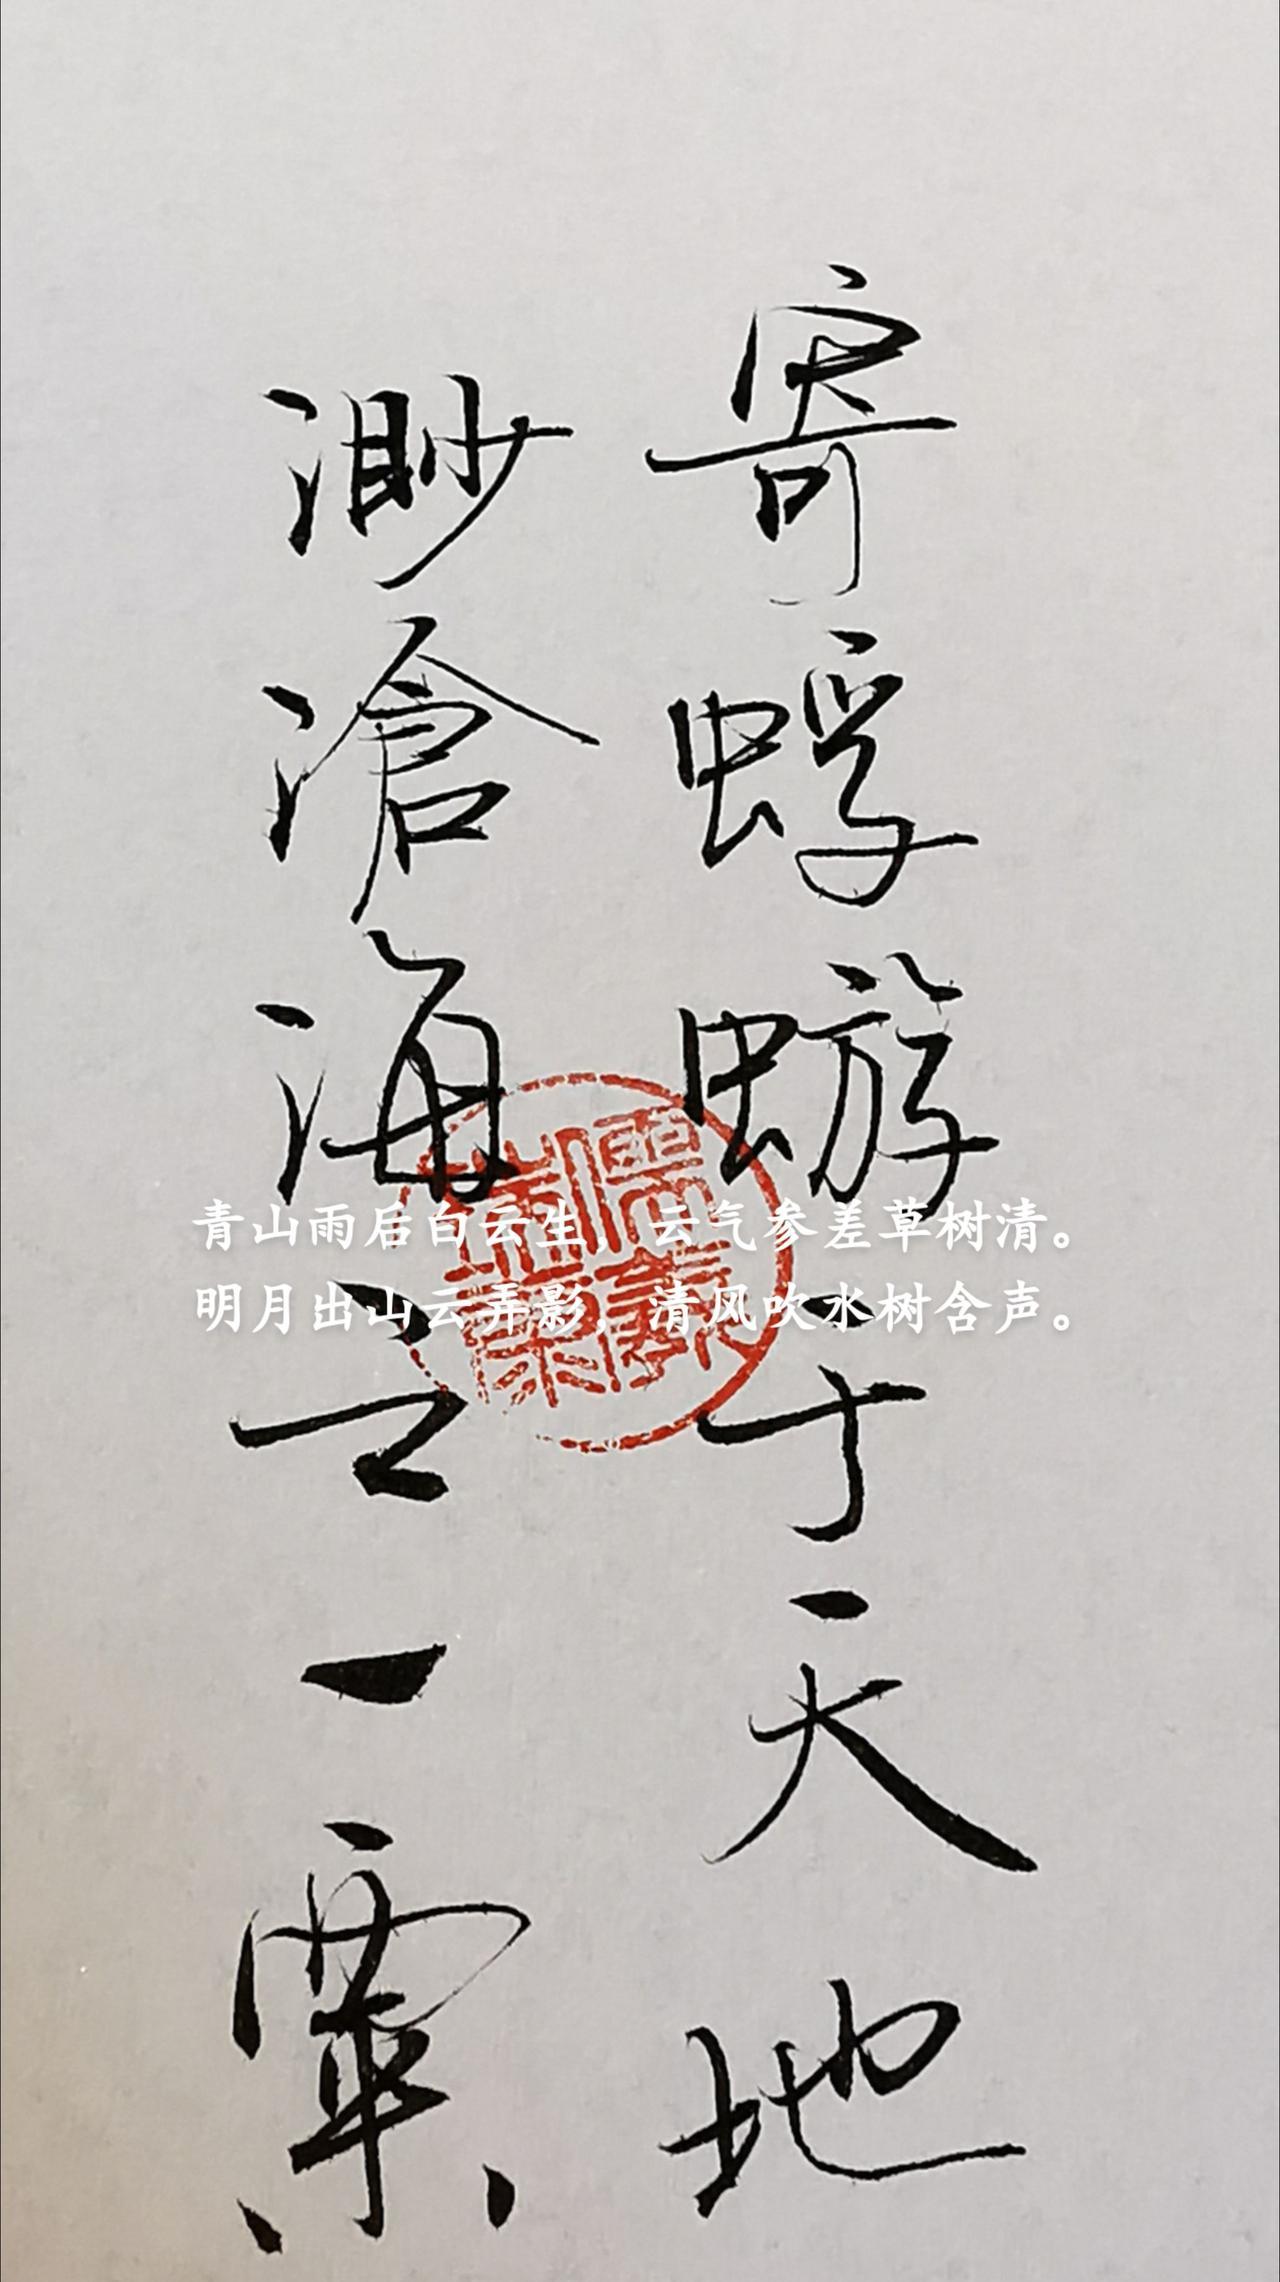 寄蜉蝣于天地
渺滄海之一粟
青山雨后白云生，云气参差草树清。
明月出山云弄影，清风吹水树含声。